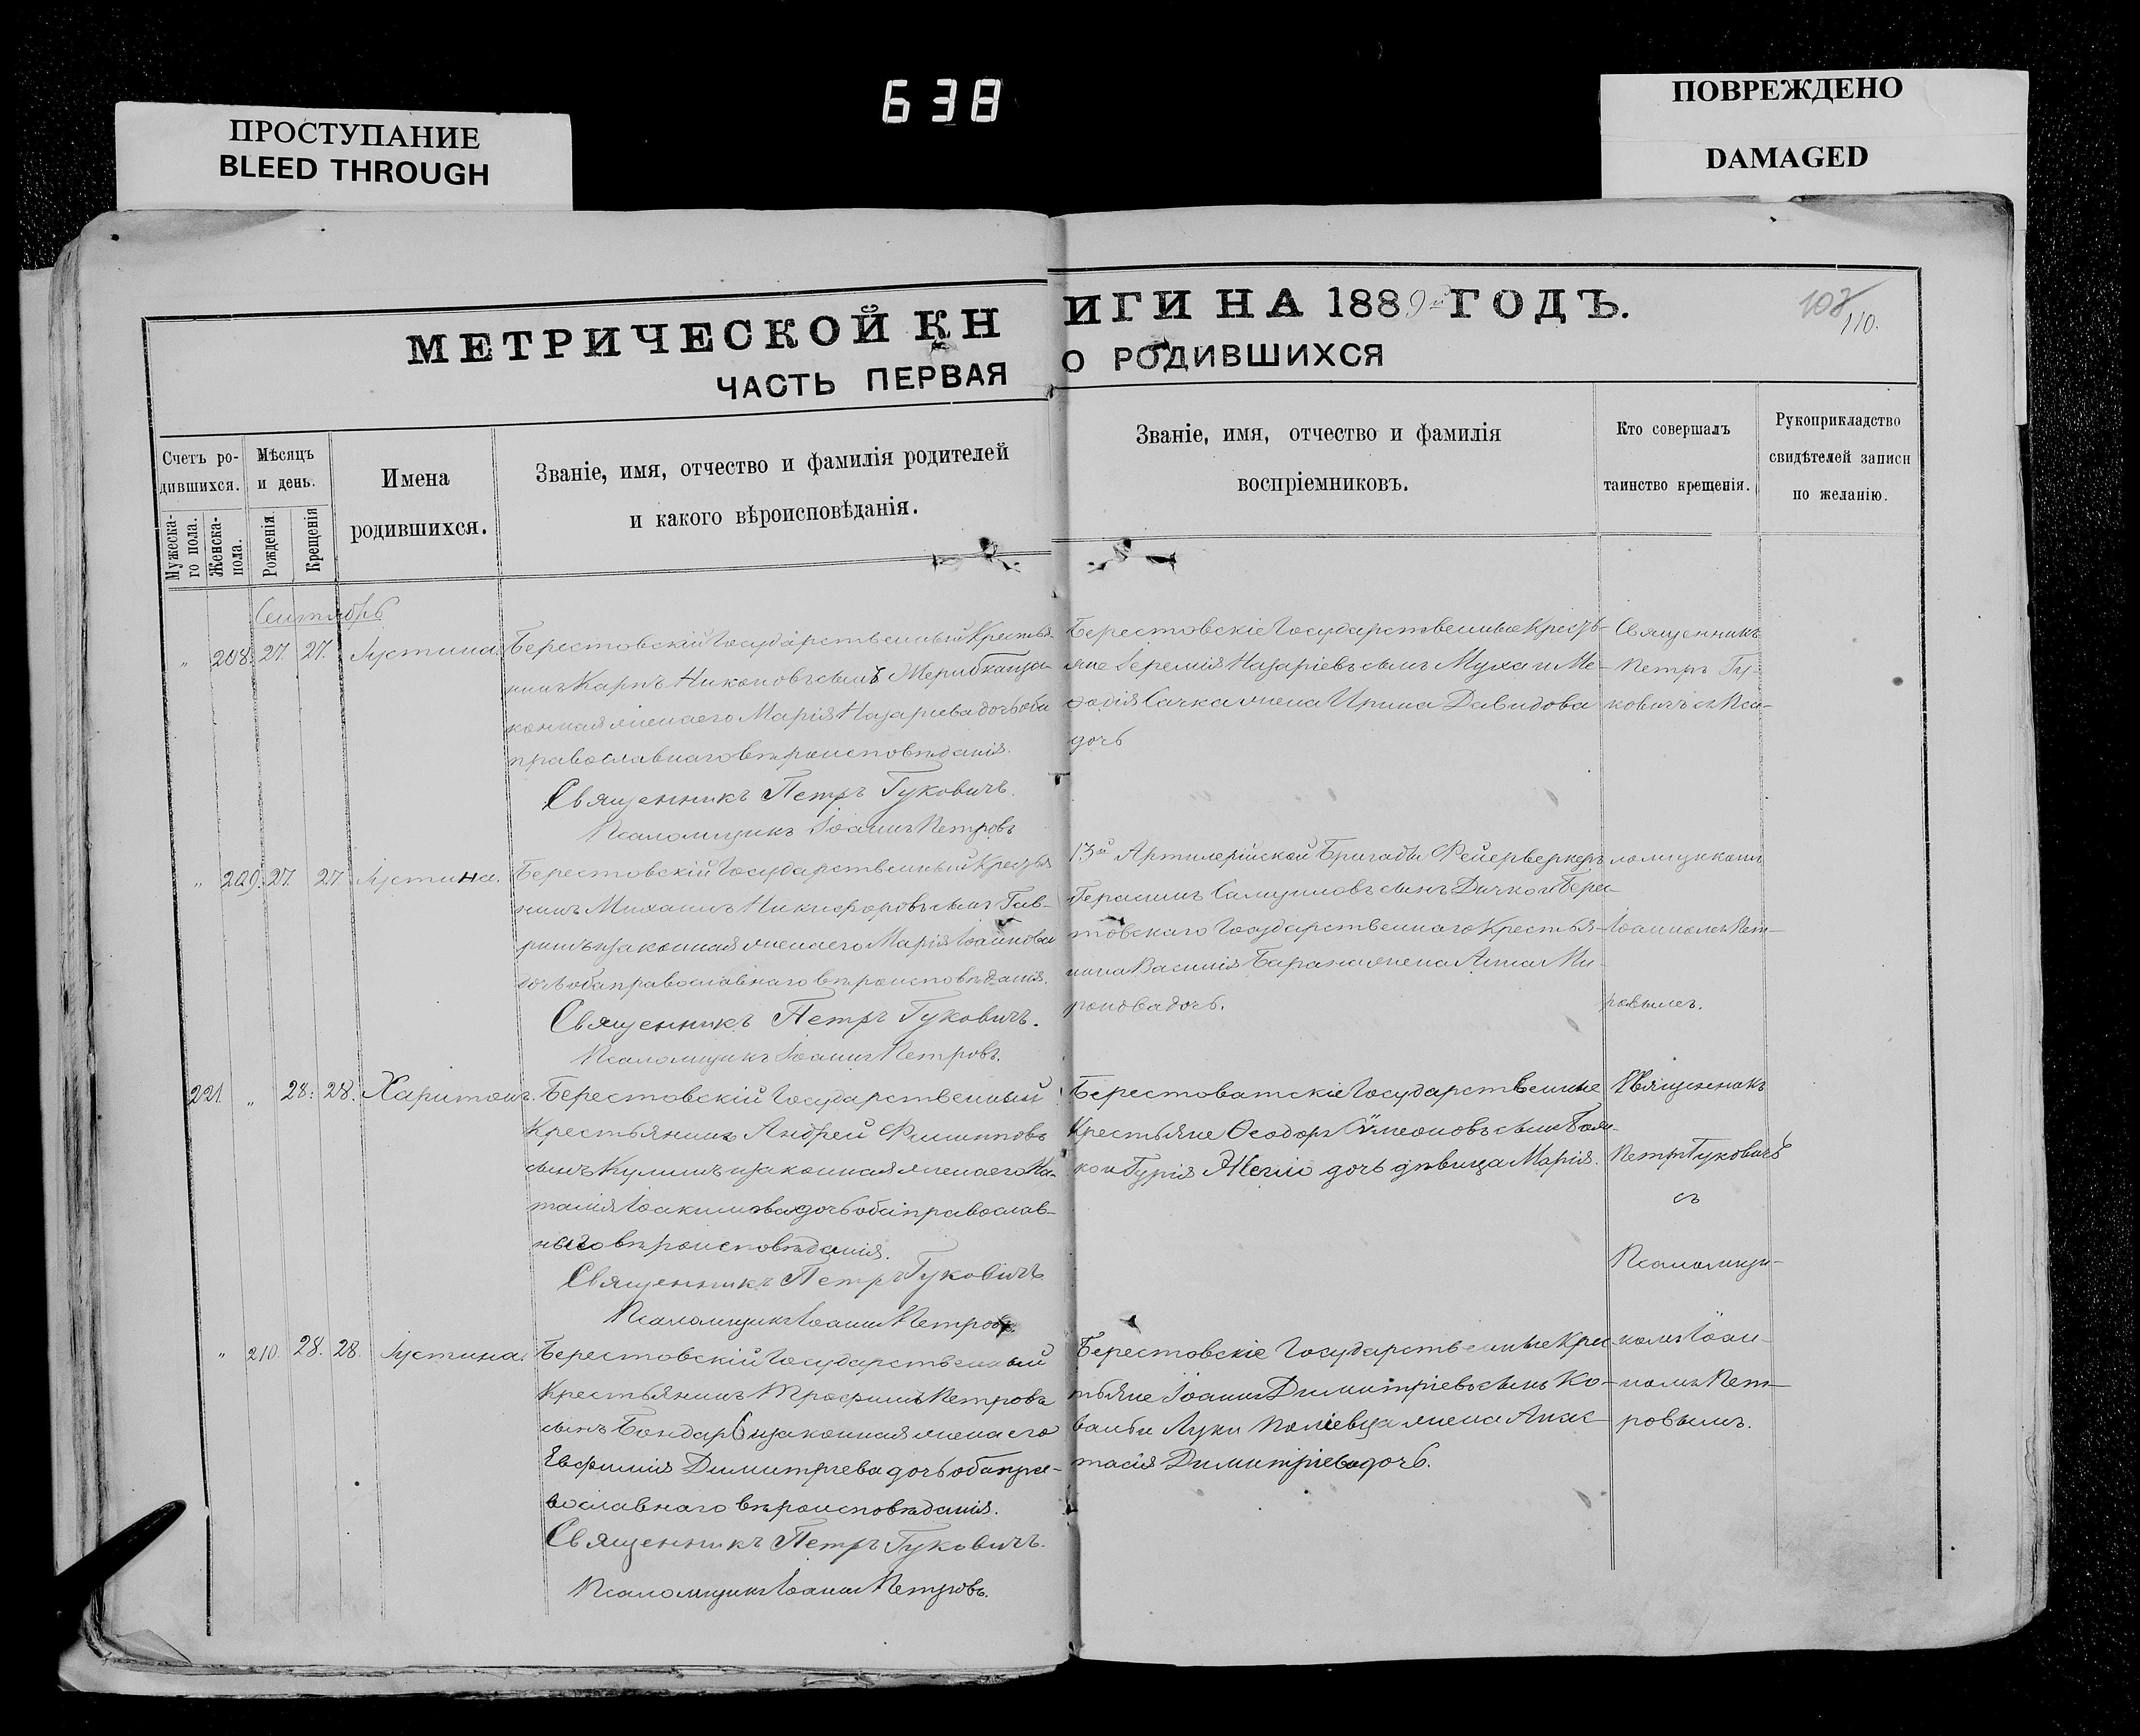 638
ПРОСТУПАНИЕ
BLEED THROUGH
ПОВРЕЖДЕНО
DAMAGED
МЕТРИЧЕСКОЙ КНИГИ НА 1889й ГОДЪ.
110.
ЧАСТЬ ПЕРВАЯ О РОДИВШИХСЯ
Счетъ ро-
дившихся.
Мужеска-
го пола.
Женска-
пола.
Мѣсяцъ
и день.
Рожденія.
Крещенія
Имена
родившихся.
Званіе, имя, отчество и фамилія родителей
и какого вѣроисповѣданія.
Званіе, имя, отчество и фамилія
воспріемниковъ.
Кто совершалъ
таинство крещенія.
Рукоприкладство
свидѣтелей записи
по желанію.
Сентябрь
" 208. 27. 27. Іустина.
Берестовскій Государственный Крестья-
нинъ Карпъ Никоновъ сынъ
конная жена его Марія Назариева дочь оба
православнаго вѣроисповѣданія.
Священникъ Петръ Гуковичъ.
Псаломщикъ Іоаннъ Петровъ
Берестовскіе Государственные Кресть-
яне Іеремія Назаріевъ сынъ Муха и Ме-
фодія Сачка жена Ирина Давидова
дочь
Священникъ
Петръ Гу-
ковичъ съ Пса-
" 209. 27. 27. Іустина.
Берестовскій Государственный Крестья
нинъ Михаилъ Никифоровъ сынъ Гав-
ришъ и законная жена его Марія Іоаннова
дочь оба православнаго вѣроисповѣданія.
Священникъ Петръ Гуковичъ.
Псаломщикъ Іоаннъ Петровъ.
13й Артилерійской Бригады Фейерверкеръ
Герасимъ Самуиловъ сынъ Дичко и Берес-
товскаго Государственнаго Крестья-
нина Василія Барана жена Анна Ми-
ронова дочь.
ломщикомъ
Іоанномъ Пет-
ровымъ.
221. " 28. 28. Харитонъ.
Берестовскій Государственный
Крестьянинъ Андрей Филипповъ
сынъ Кулишъ и законная жена его На-
талія Іоакимова дочь оба православ-
наго вѣроисповѣданія.
Священникъ Петръ Гуковичъ
Псаломщикъ Іоаннъ Петровъ.
Берестоватскіе Государственные
Крестьяне Ѳеодоръ Сѵмеоновъ сынъ
ко и Гурія дочь дѣвица Марія.
Священникъ
Петръ Гуковичъ
съ
Псаломщи-
" 210. 28. 28. Іустина.
Берестовскій Государственный
Крестьянинъ Трофимъ Петровъ
сынъ Бондарь и законная жена его
Евфимія Димитріева дочь оба пра-
вославнаго вѣроисповѣданія.
Священникъ Петръ Гуковичъ.
Псаломщикъ Іоаннъ Петровъ.
Берестовскіе Государственные Крес-
тьяне Іоаннъ Димитріевъ сынъ Ко-
Луки жена Анас-
тасія Димитріева дочь.
комъ Іоан-
номъ Пет-
ровымъ.